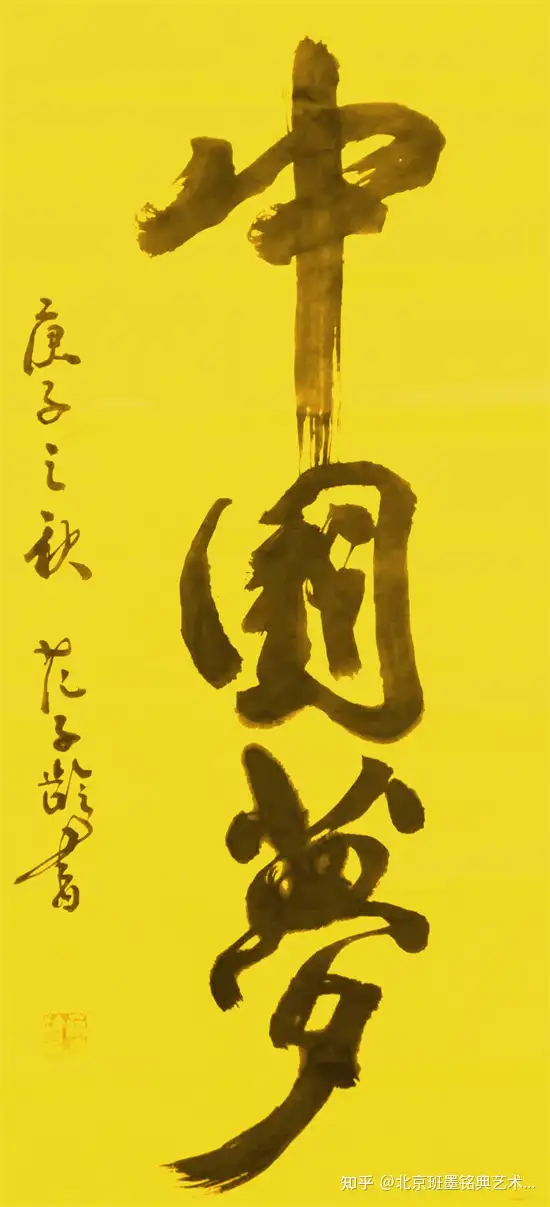 中國夢
庚子之秋 范子齡書
知乎 @北京班墨铭典艺术...